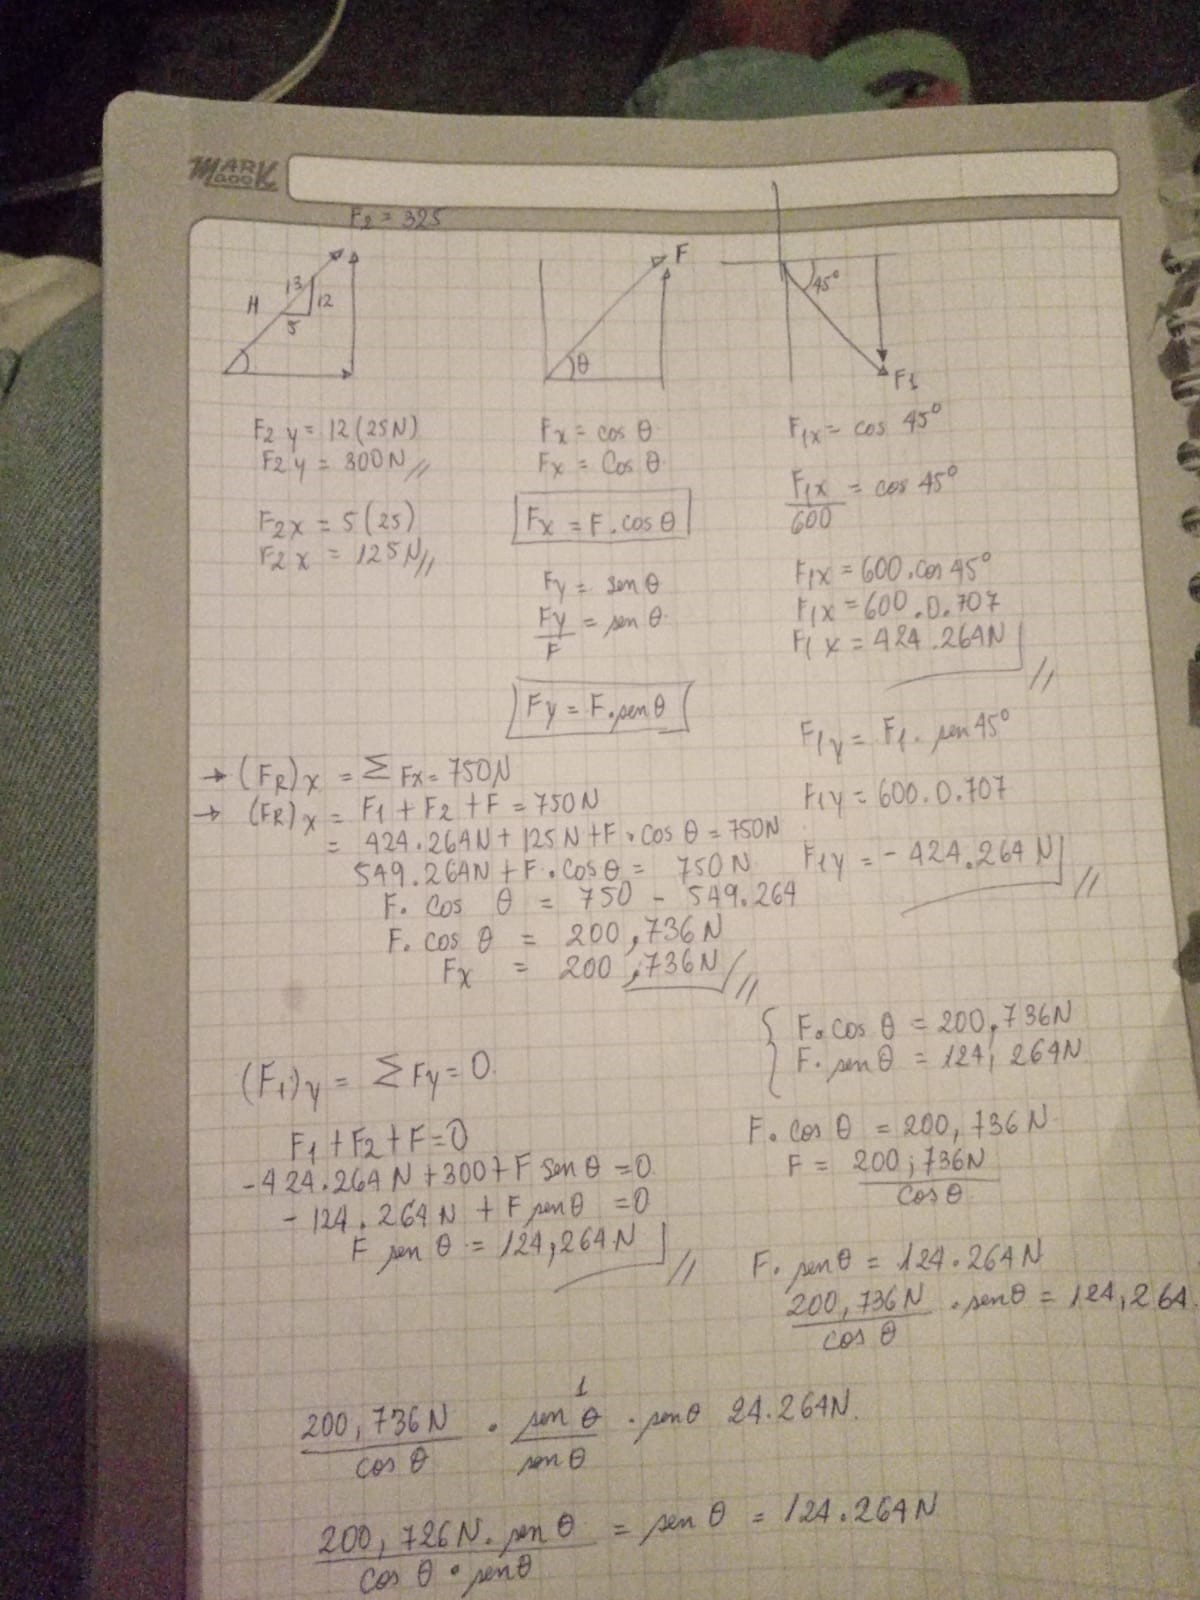 MARK BOOK
F2 = 325
H
13
12
5
F2 y = 12 (25N)
F2 y = 300N //
F2 x = 5 (25)
F2 x = 125N //
F
θ
Fx = cos θ
Fx = Cos θ
Fx = F . cos θ
Fy = sen θ
Fy/F = sen θ
Fy = F . sen θ
45°
F1
F1x = cos 45°
F1x/600 = cos 45°
F1x = 600 . cos 45°
F1x = 600 . 0.707
F1x = 424.264N //
F1y = F1 . sen 45°
F1y = 600 . 0.707
F1y = - 424.264 N //
→ (FR)x = Σ Fx = 750N
→ (FR)x = F1 + F2 + F = 750N
= 424.264N + 125N + F . cos θ = 750N
549.264N + F . cos θ = 750N
F . cos θ = 750 - 549.264
F . cos θ = 200,736N
Fx = 200,736N //
(F1)y = Σ Fy = 0
F1 + F2 + F = 0
-424.264N + 300 + F sen θ = 0
- 124.264N + F sen θ = 0
F sen θ = 124,264N //
{ F . cos θ = 200,736N
F . sen θ = 124,264N
F . cos θ = 200,736N
F = 200,736N / cos θ
F . sen θ = 124.264N
200,736N / cos θ . sen θ = 124,264
1
200,736N / cos θ . sen θ / sen θ . sen θ 24.264N.
200,726N . sen θ / cos θ . sen θ = sen θ = 124.264N